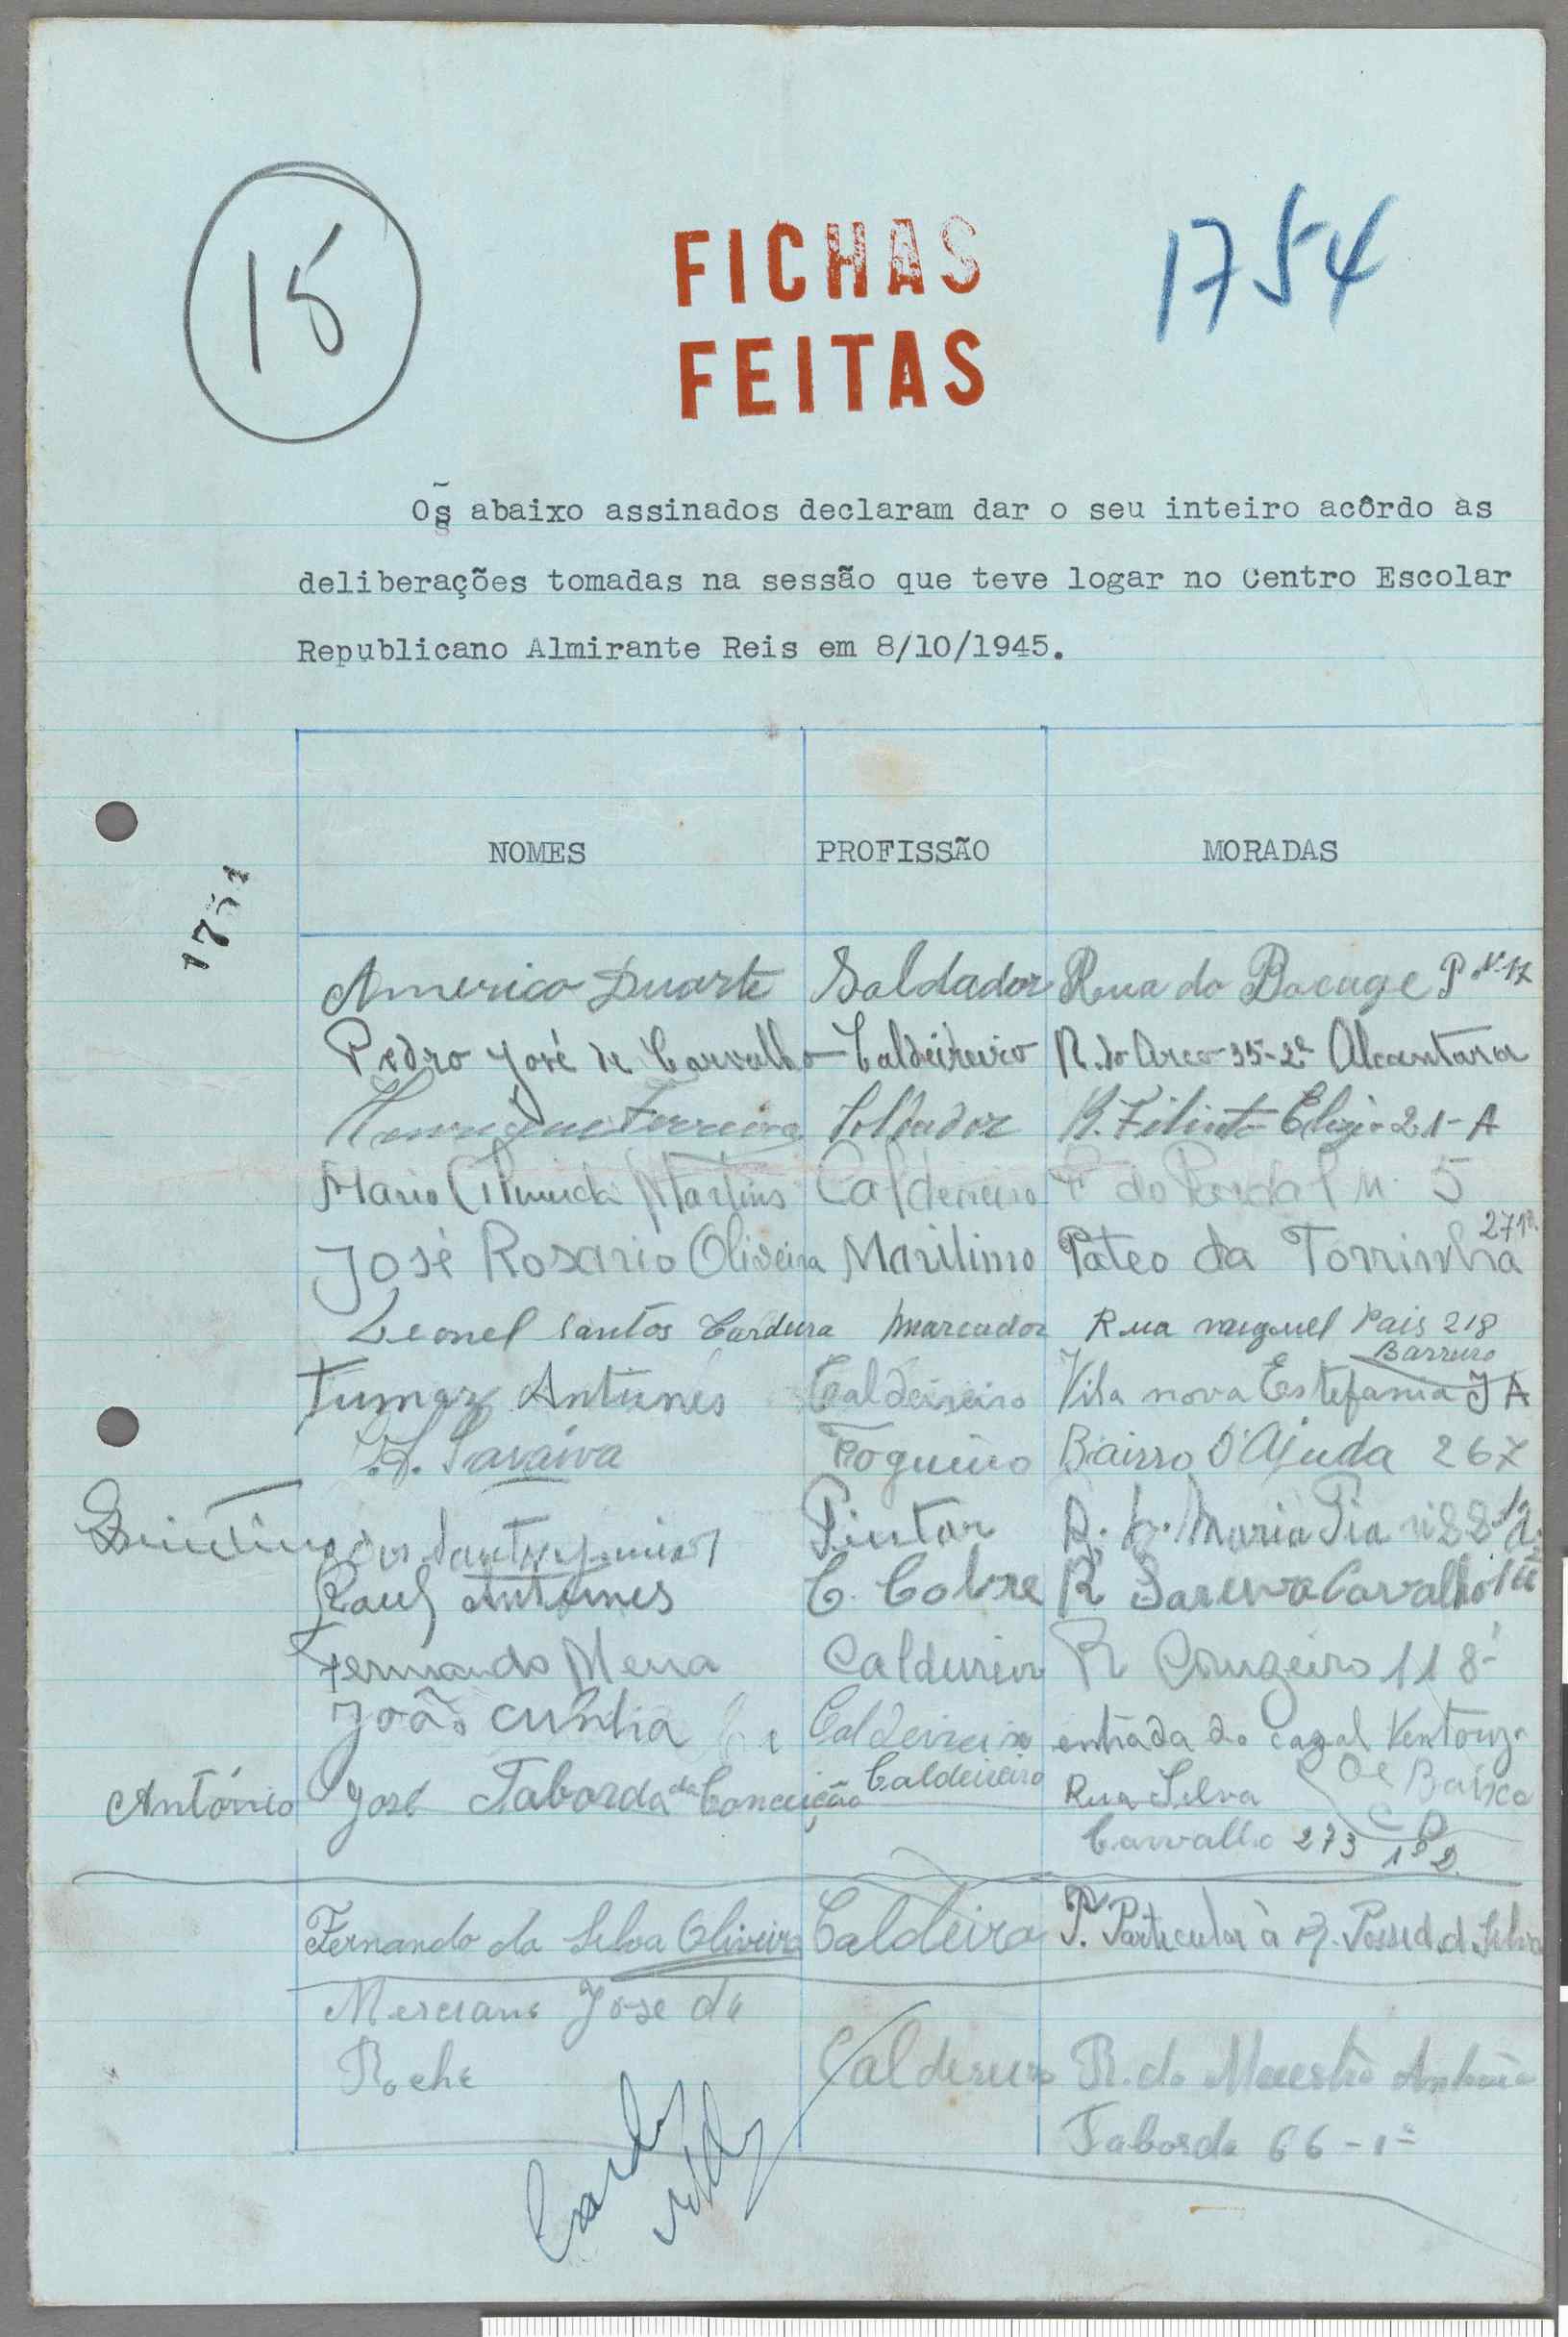 15
FICHAS
FEITAS
1754
Os abaixo assinados declaram dar o seu inteiro acôrdo às
deliberações tomadas na sessão que teve logar no Centro Escolar
Republicano Almirante Reis em 8/10/1945.
NOMES PROFISSÃO MORADAS
Americo Duarte Soldador Rua do Bocage P Nº 17
Pedro José de Carvalho Caldeireiro R. do Arco 35-2º Alcantara
Henrique Ferreira Soldador R. Filinto Elizio 21-A
Mario Almeida Martins Caldeireiro do Pardal N. 5
José Rosario Oliveira Maritimo Pateo da Torrinha 27 1º
Leonel Santos Cardura Marcador Rua Miguel Pais 218
Barreiro
Tumaz Antunes Caldeireiro Vila nova Estefania J A
Saraiva Fogueiro Bairro D'Ajuda 267
dos Santos Junior Pintor R. D. Maria Pia
Raul Antunes C. Cobre R Saraiva Carvalho
Fernando Mena Caldereiro R Cruzeiro 118
João Cunha Caldeireiro entrada do cazal Ventozo
de Baixo
António José Taborda da Conceição Caldeireiro Rua Silva
Carvalho 273 1º D.
Fernando da Silva Oliveira Caldeira P. Particular à R. Possid. d. Silva
Merciano José da
Rocha Caldereiro R. do Maestro Antonio
Taborda 66-1º